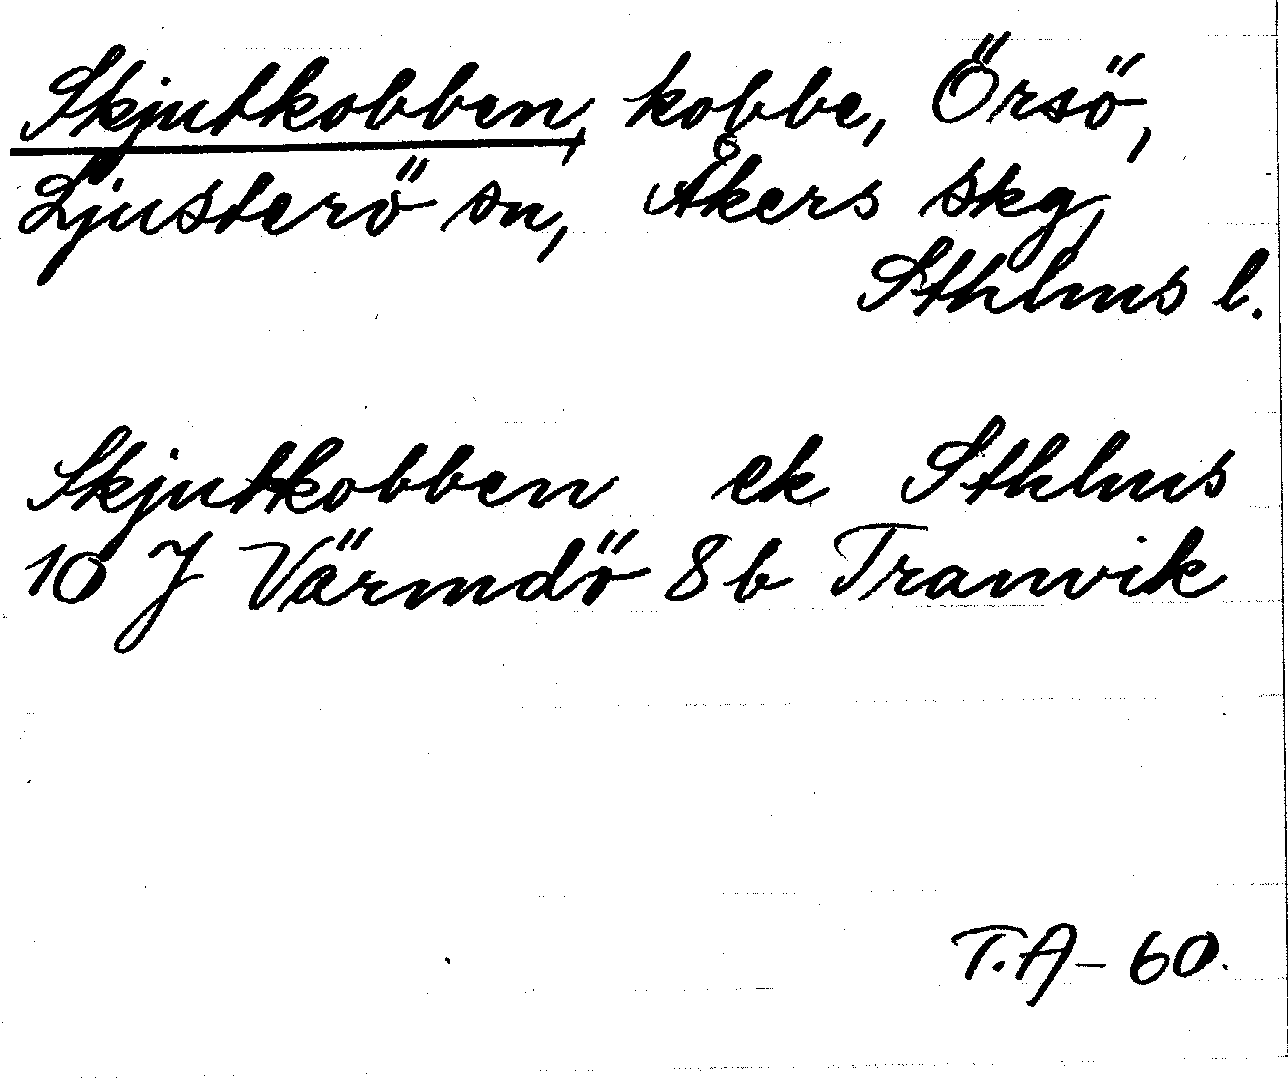 Skjutkobben, kobbe, Örsö,
Ljusterö sn, Åkers skg,
Sthlms l.
Skjutkobben ek Sthlms
10 J Värmdö 8 b Tranvik
T.A - 60.